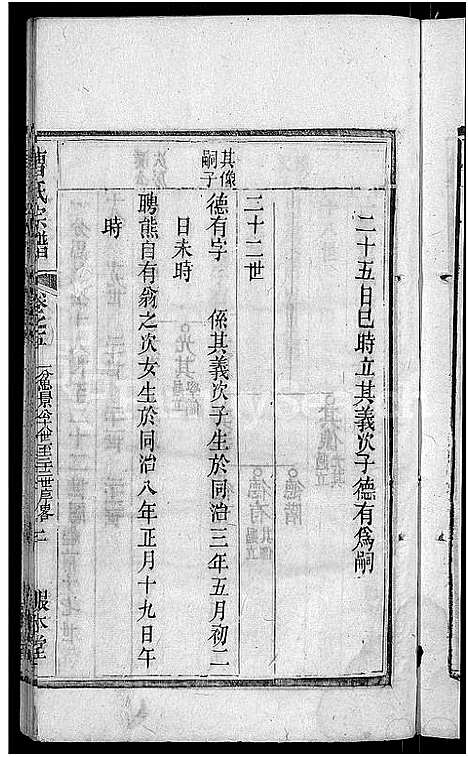 二十五日巳時立其義次子德有爲嗣
三十二世
其像嗣子
德有字　係其義次子生於同治三年五月初二
日未時
聘熊自有翁之次女生於同治八年正月十九日午
時
曹氏宗譜
卷之五